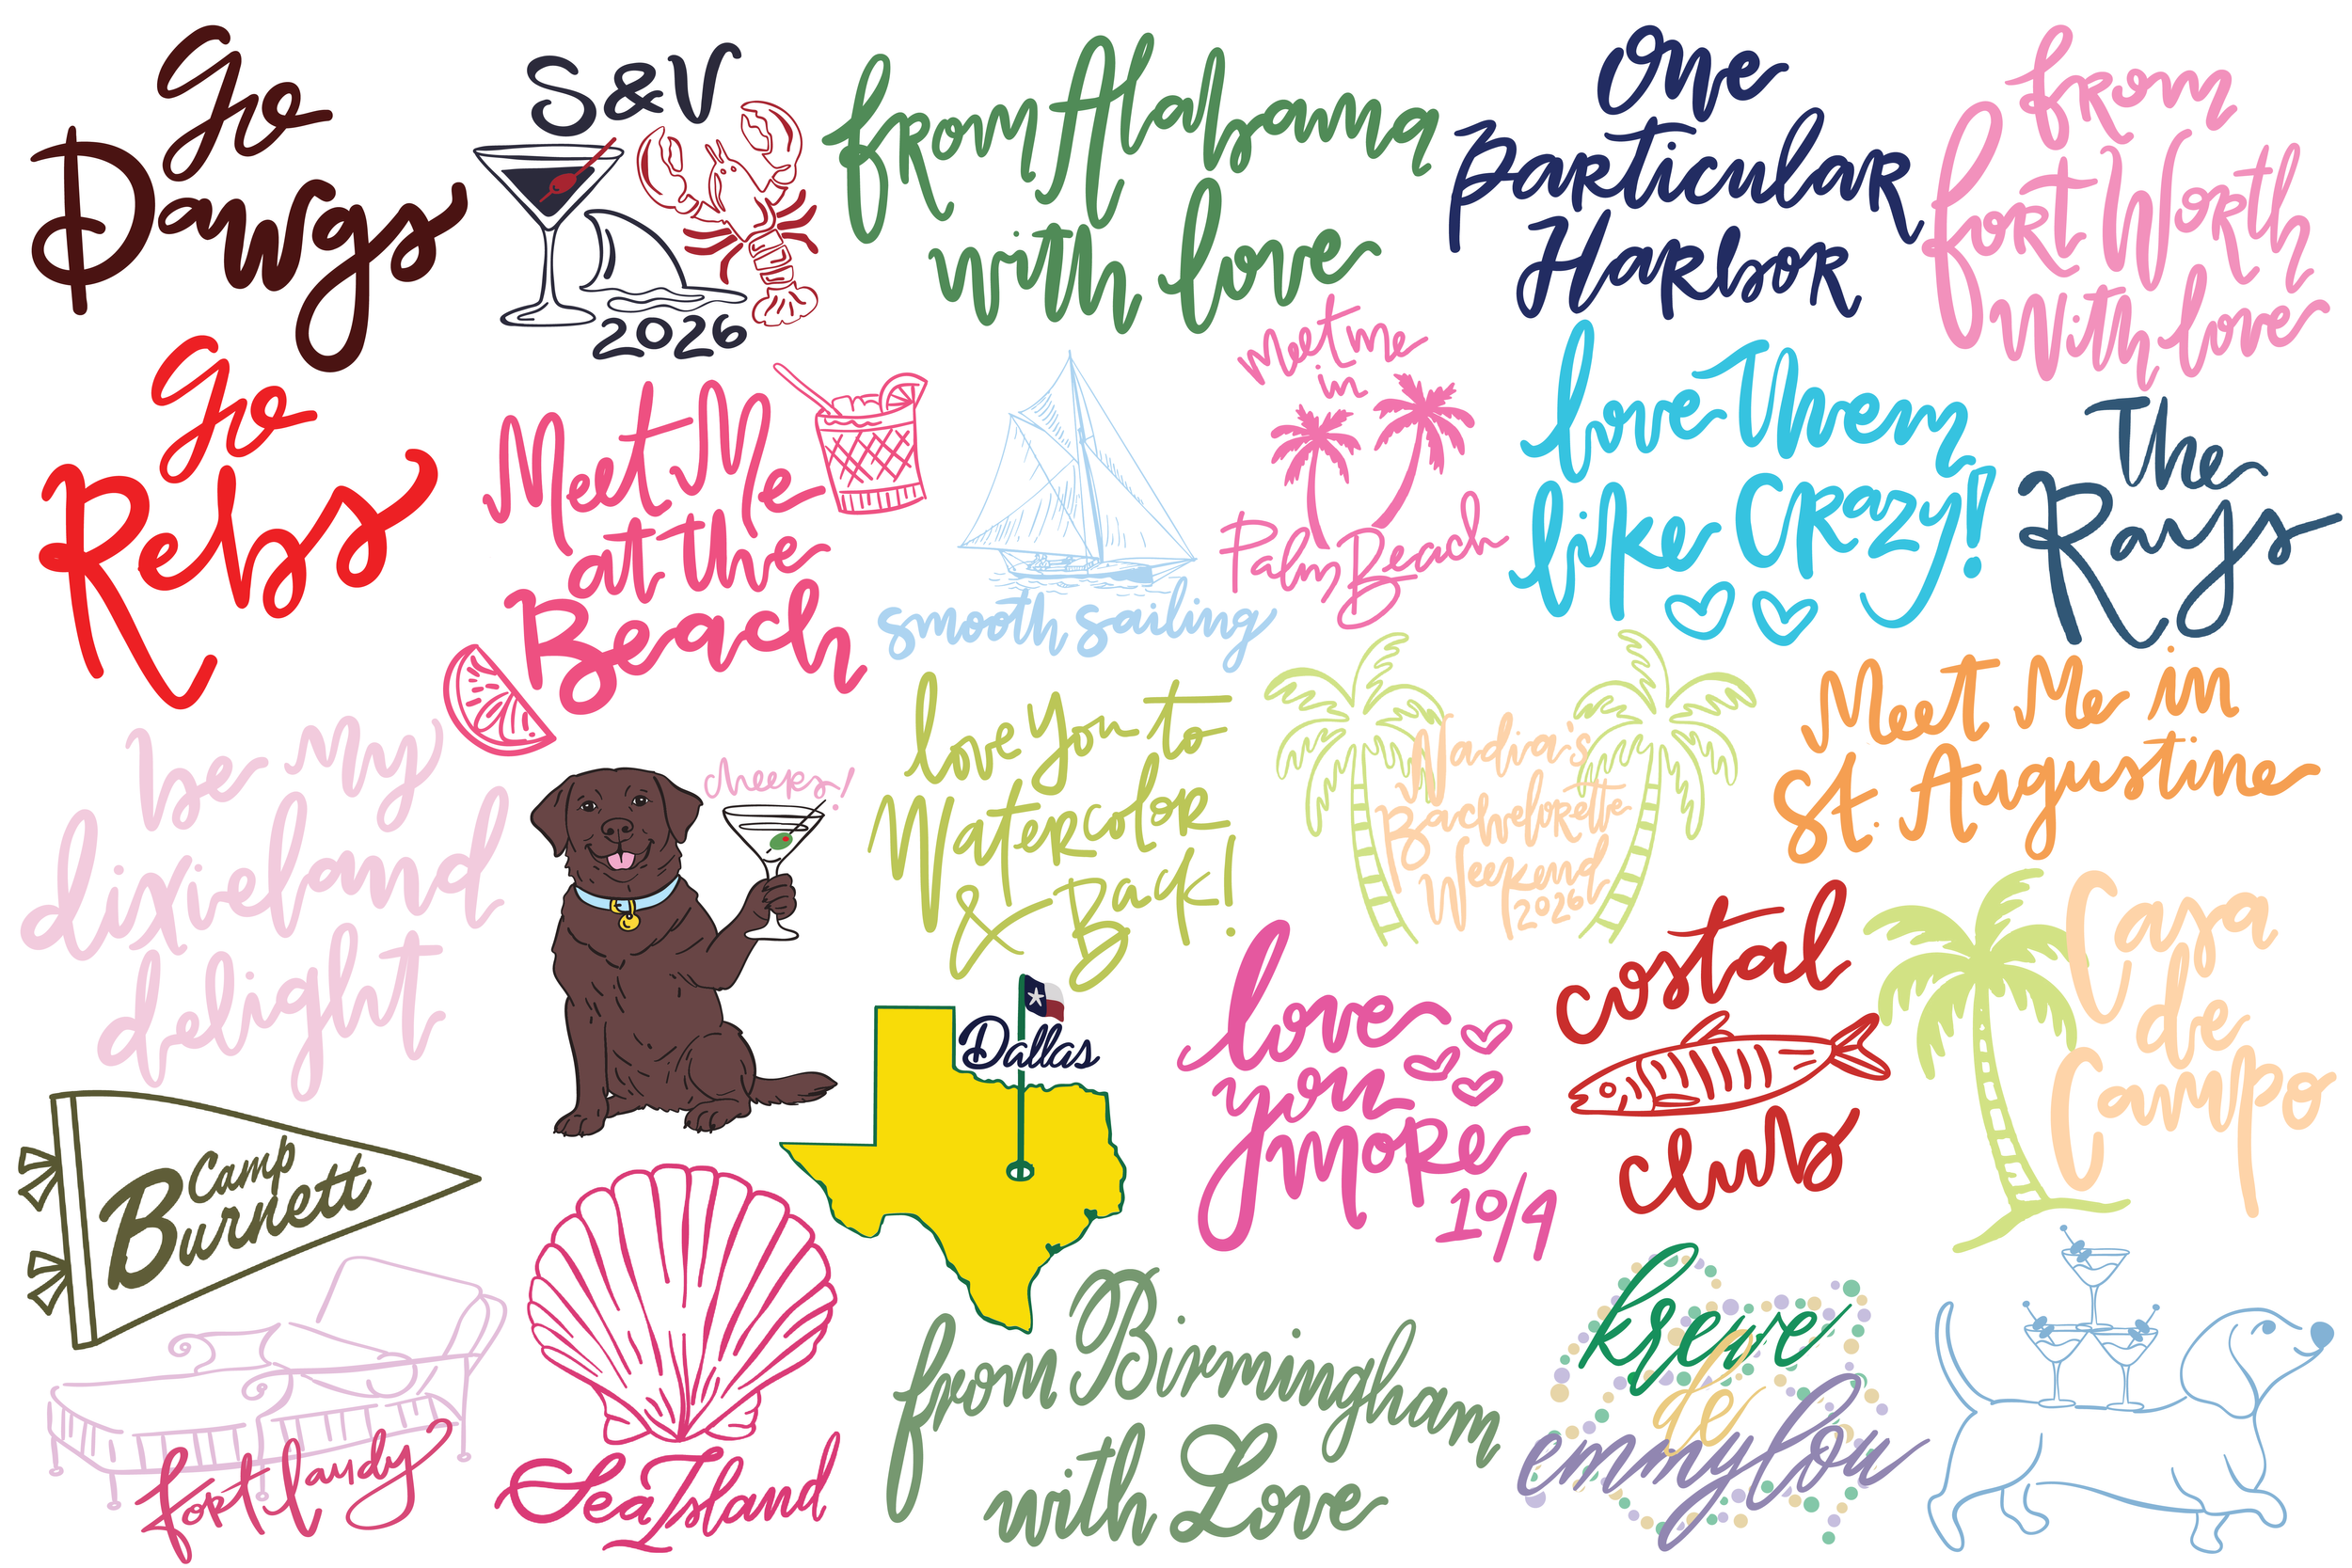 Go
Dawgs
S&V
2026
from Alabama
with love
One
Particular
Harbor
from
fort Worth
with love
Go
Rebs
Meet Me
at the
Beach
smooth sailing
Meet me
in
Palm Beach
love Them
like Crazy!
The
Rays
be my
dixieland
delight
cheers!
love you to
Watercolor
& Back!
Nadia's
Bachelorette
Weekend
2026
Meet Me in
St. Augustine
Camp
Burnett
Dallas
love
you
more
10/4
costal
club
Casa
de
Campo
fort laudy
Sea Island
from Birmingham
with Love
krewe
de
emmylou